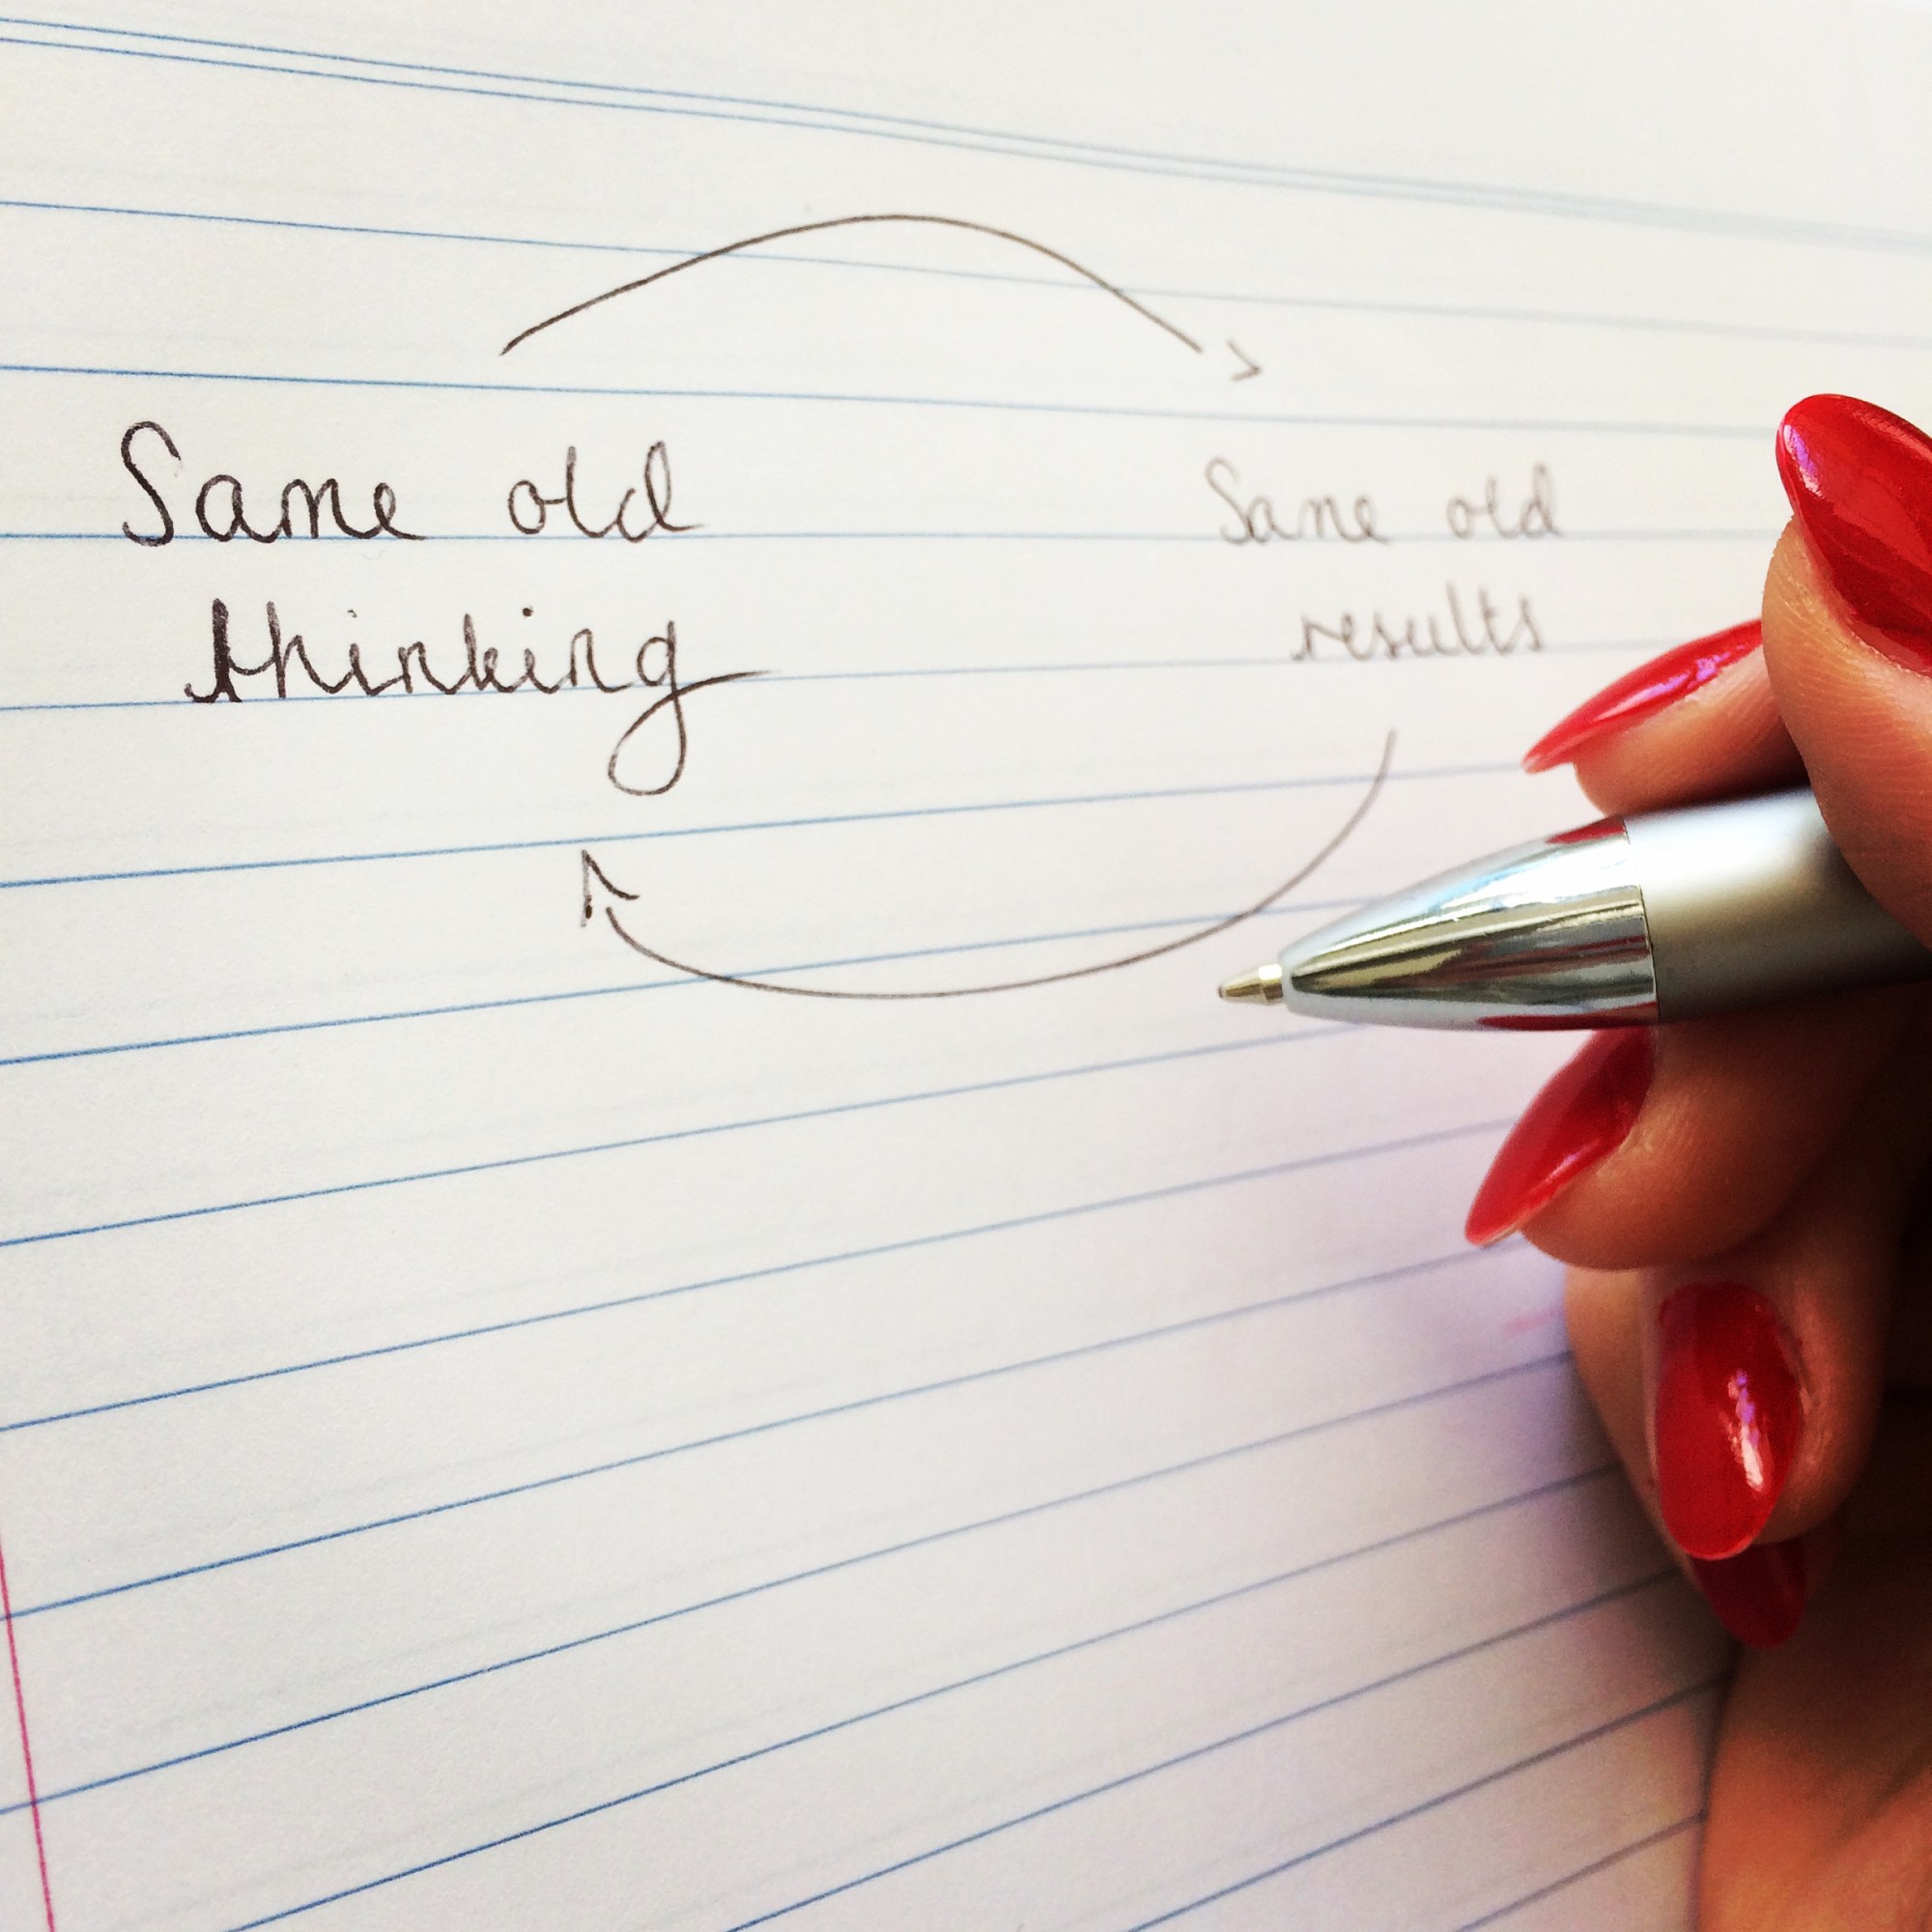 Same old
thinking
Same old
results